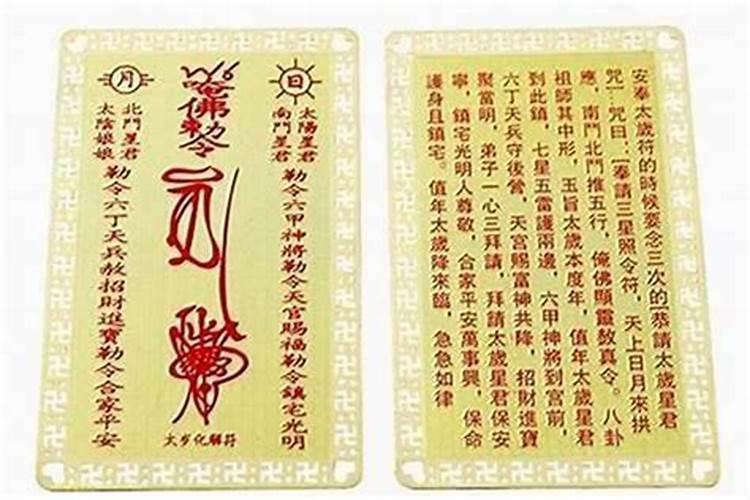 日
太陽星君
南鬥星君
勒令六甲神將勒令天官賜福勒令鎮宅光明
唵佛勅令
太岁化解符
月
北鬥星君
太陰娘娘
勒令六丁天兵敖招財進寶勒令合家平安
安奉太歲符的時候要念三次的[恭請太歲星君
咒：咒曰：[奉請三星照令符，天上日月來拱
應，南鬥北鬥推五行，俺佛顯靈敖真令。八卦
祖師其中形，玉旨太歲本度年，值年太歲星君
到此鎮，七星五雷護兩邊，六甲神將到宮前，
六丁天兵守後營，天宮賜富神共降，招財進寶
聚當明，弟子一心三拜請，拜請太歲星君保安
寧，鎮宅光明人尊敬，合家平安萬事興，保命
護身且鎮宅。值年太歲降來臨，急急如律